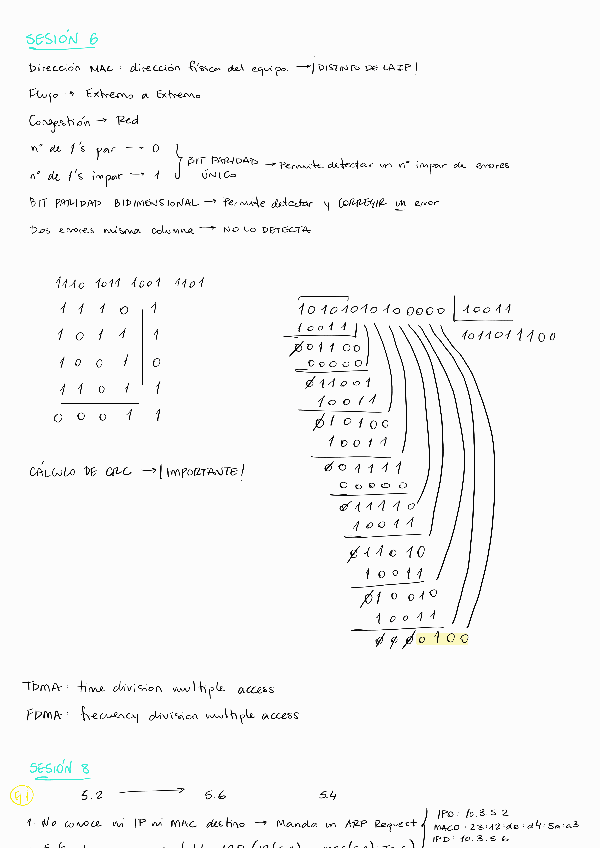 SESIÓN 6
Dirección MAC: dirección física del equipo. → ¡DISTINTO DE LA IP!
Flujo → Extremo a Extremo
Congestión → Red
nº de 1's par → 0
BIT PARIDAD ÚNICO → Permite detectar un nº impar de errores
nº de 1's impar → 1
BIT PARIDAD BIDIMENSIONAL → Permite detectar y CORREGIR un error
Dos errores misma columna → NO LO DETECTA
1110 1011 1001 1101
1 1 1 0 1
1 0 1 1 1
1 0 0 1 0
1 1 0 1 1
0 0 0 1 1
10101010100000 10011
1011011100
10011
001100
00000
011001
10011
010100
10011
001111
00000
011110
10011
011010
10011
010010
10011
0000100
CÁLCULO DE CRC → ¡IMPORTANTE!
TDMA: time division multiple access
FDMA: frecuency division multiple access
SESIÓN 8
5.2 → 5.6 5.4
1. No conoce ni IP ni MAC destino → Manda un ARP Request
IPO: 10.3.5.2
IPD: 10.3.5.6